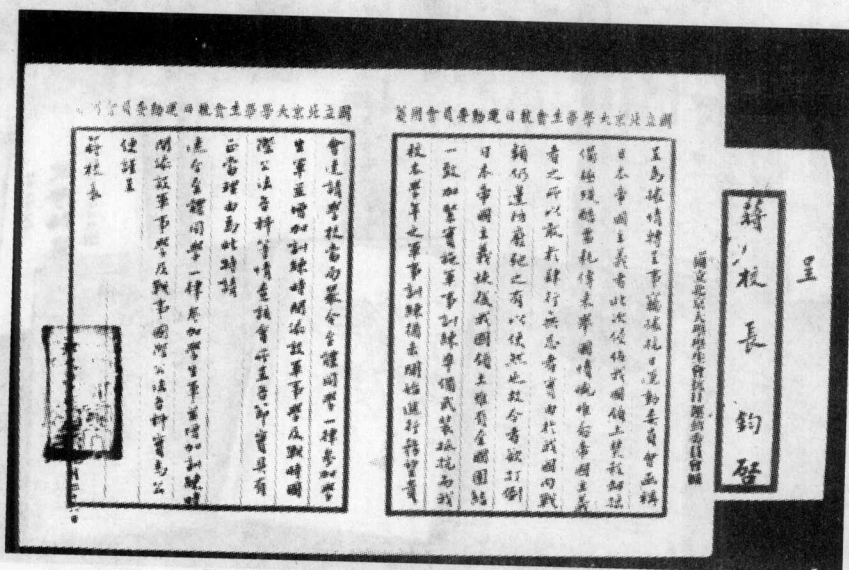 呈
蔣校長鈞啓
國立北京大學學生會抗日運動委員會緘
國立北京大學學生會抗日運動委員會用箋
呈為據情轉呈事竊據抗日運動委員會函稱
日本帝國主義者此次侵佔我國領土焚殺
備極殘酷噩耗傳來舉國憤慨唯白帝國主義
者之所以敢於肆行無忌者實由於我國內戰
頻仍邊防廢弛之有以使然也故今者欲打倒
日本帝國主義恢復我國領土惟有全國團結
一致加緊實施軍事訓練準備武裝抵抗而我
校本學年之軍事訓練猶未開始進行務望貴
國立北京大學學生會抗日運動委員會
會速請學校當局嚴令全體同學一律參加學
生軍並增加訓練時間添設軍事學及戰時國
際公法各科等情查該會所呈各節實具有
正當理由為此轉請
速令全體同學一律參加學生軍並增加訓練時
間添設軍事學及戰事國際公法各科實為公
便謹呈
蔣校長